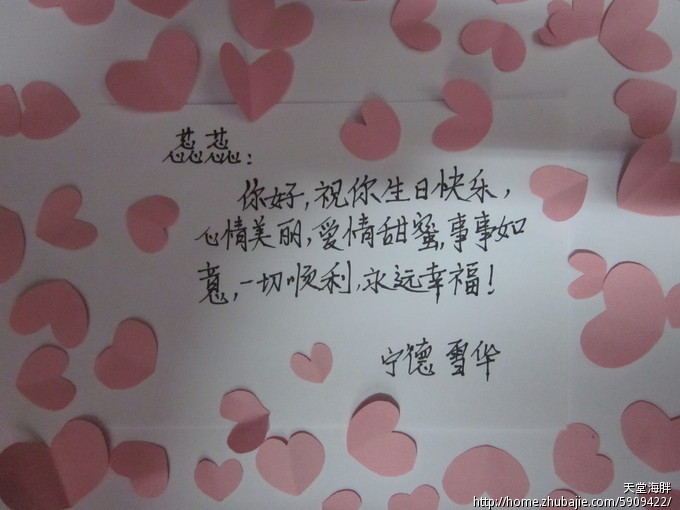 蕊蕊:
你好,祝你生日快乐,
心情美丽,爱情甜蜜,事事如
意,一切顺利,永远幸福!
宁德 雪华
天堂海胖
http://home.zhubajie.com/5909422/